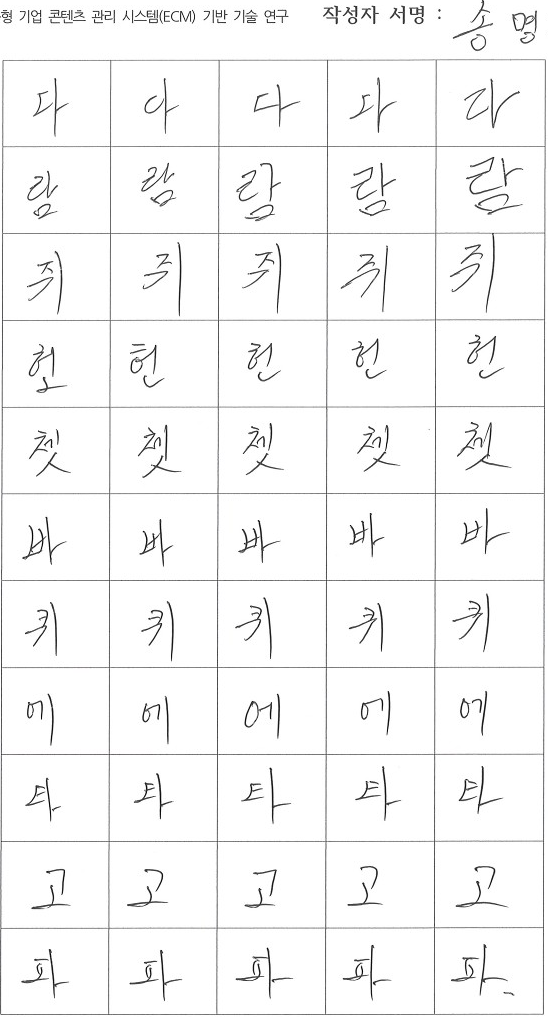 형 기업 콘텐츠 관리 시스템(ECM) 기반 기술 연구 작성자 서명 : 송 명
다 다 다 다 다
람 람 람 람 람
쥐 쥐 쥐 쥐 쥐
헌 헌 헌 헌 헌
쳇 쳇 쳇 쳇 쳇
바 바 바 바 바
퀴 퀴 퀴 퀴 퀴
에 에 에 에 에
타 타 타 타 타
고 고 고 고 고
파 파 파 파 파